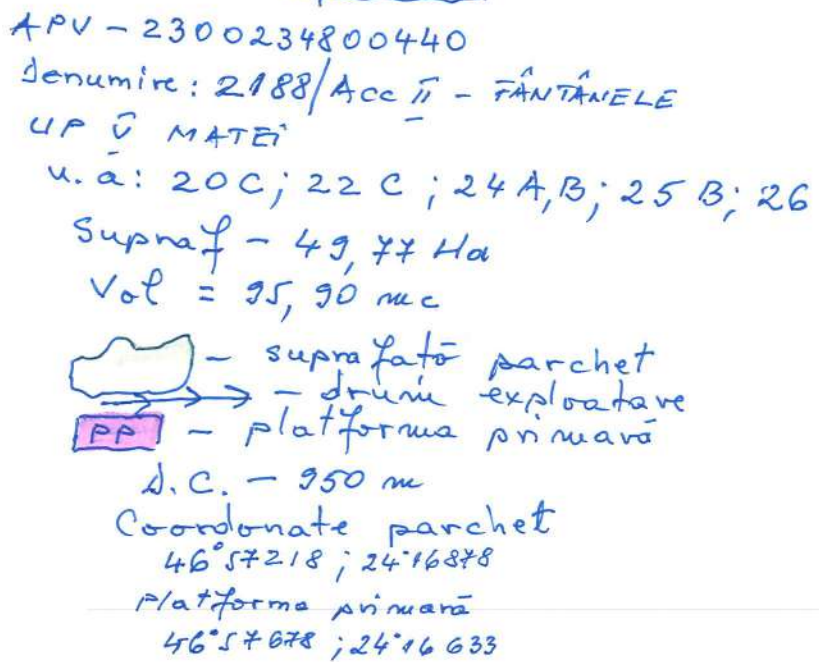 APV - 2300234800440
Denumire: 2188/Acc II - FÂNTÂNELE
UP V MATEI
u.a: 20C; 22 C; 24 A,B; 25 B; 26
Supraf - 49,77 Ha
Vol = 95,90 mc
- suprafață parchet
- drum exploatare
PP - platforma primară
D.C. - 950 m
Coordonate parchet
46°57218; 24°16878
Platforma primară
46°57678; 24°16633